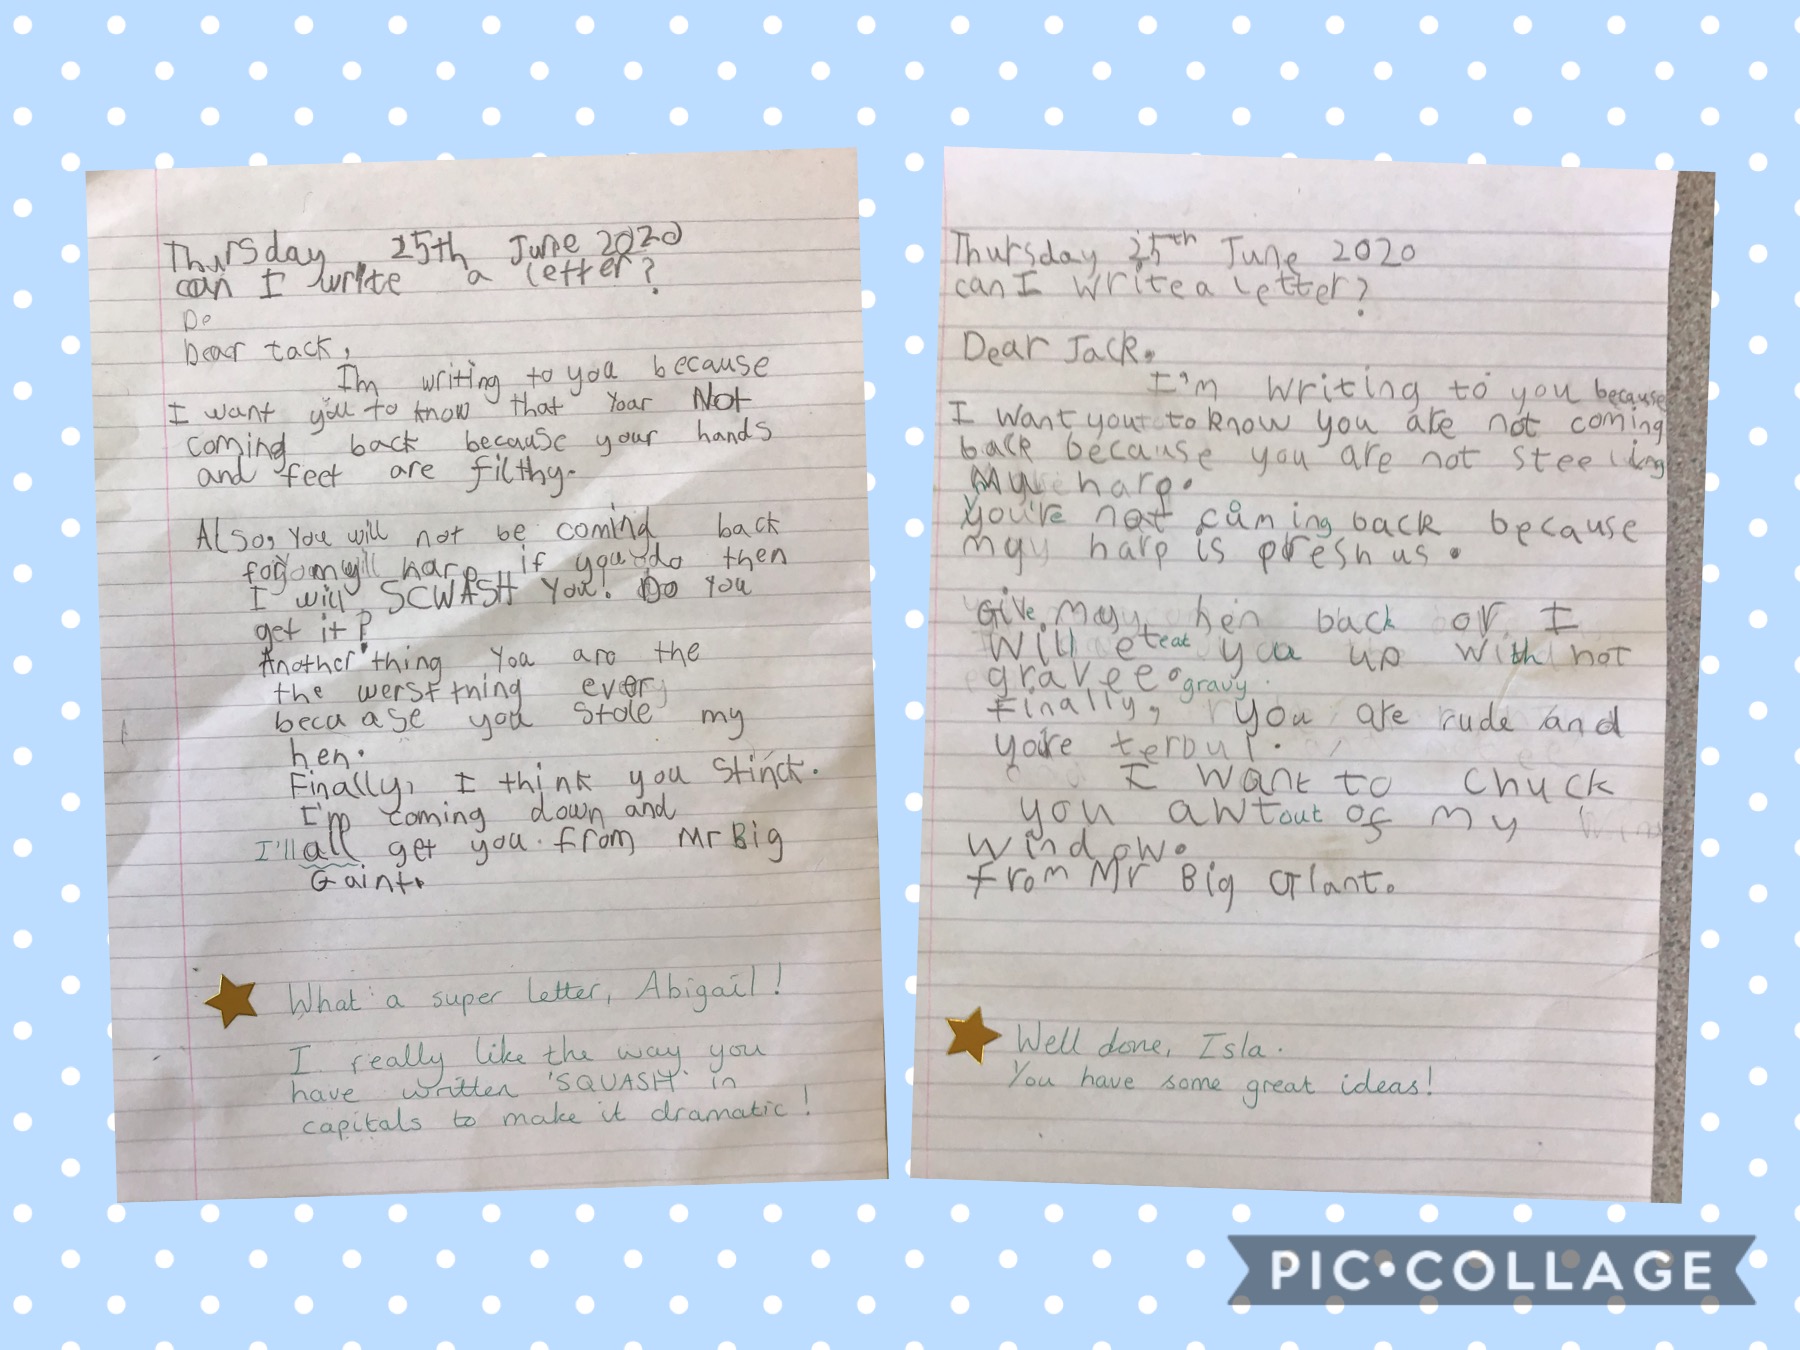 Thursday 25th June 2020
can I write a letter?
De
Dear tack,
I'm writing to you because
I want you to know that Your Not
coming back because your hands
and feet are filthy.
Also, You will not be coming back
my harp if you do then
I will SCWASH You. Do You
get it?
Another thing You are the
the werst thing ever
because you stole my
hen.
Finally, I think you Stinck.
I'm coming down and
I'll all get you. from Mr Big
Gaint.
What a super letter, Abigail!
I really like the way you
have written 'SQUASH' in
capitals to make it dramatic!
Thursday 25th June 2020
can I write a letter?
Dear Jack.
I'm writing to you because
I want you to know you are not coming
back because you are not steeling
My harp.
You're not coming back because
my harp is preshus.
Give my hen back or I
will eat you up with hot
gravee. gravy.
Finally, you are rude and
you're terbul.
I want to chuck
you awt out of my
window.
From Mr Big Giant.
Well done, Isla.
You have some great ideas!
PIC•COLLAGE